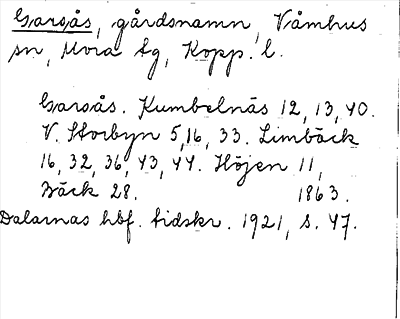 Garsås, gårdsnamn, Våmhus
sn, Mora tg, Kopp. l.
Garsås. Kumbelnäs 12, 13, 40.
V. Storbyn 5, 16, 33. Limbäck
16, 32, 36, 43, 44. Höjen 11,
Bäck 28. 1863.
Dalarnas hbf. tidskr. 1921, s. 47.